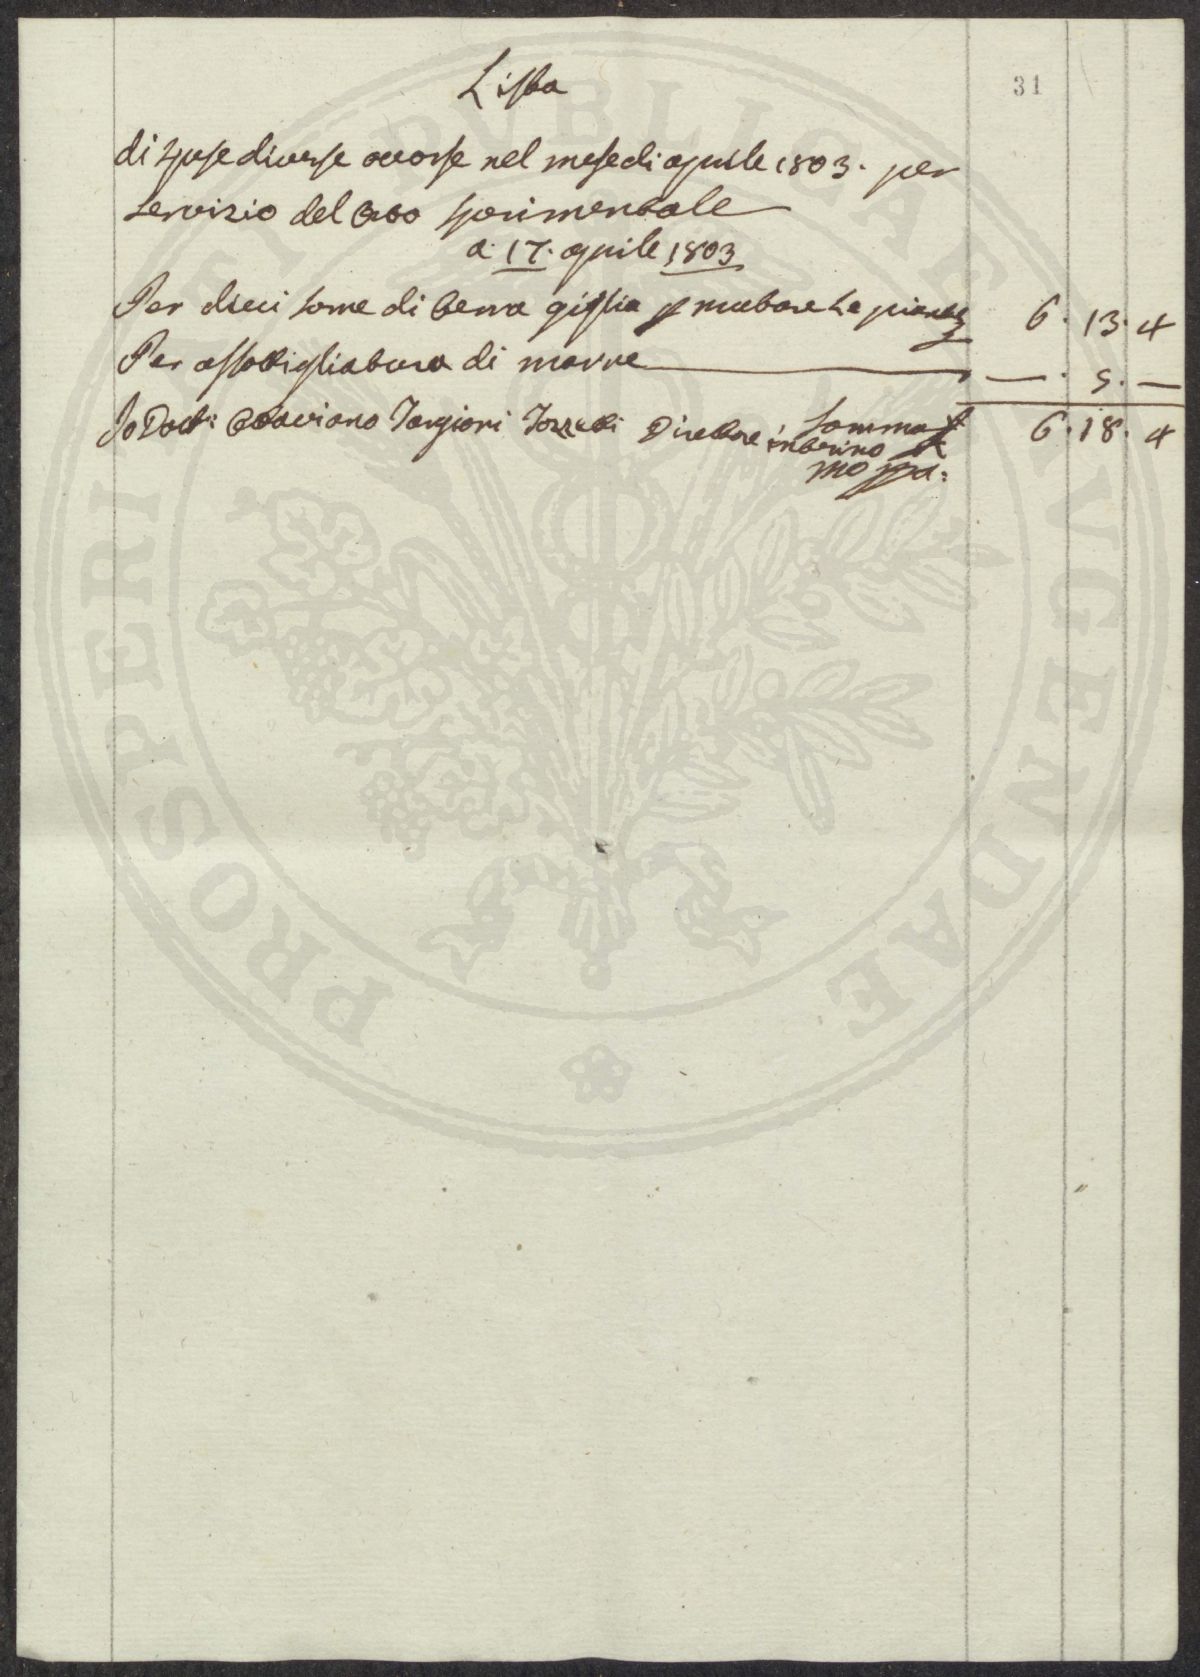 31
Lista
di spese diverse occorse nel mese di aprile 1803. per
servizio del Orto sperimentale
a: 17. aprile 1803
Per dieci some di terra giglia p mutare le piante 6. 13. 4
Per assottigliatura di marre — . 5. —
Somma 6. 18. 4
Io Dott: Ottaviano Targioni Tozzetti Direttore interino
mo ppa:
PROSPERITATI PVBLICAE AVGENDAE